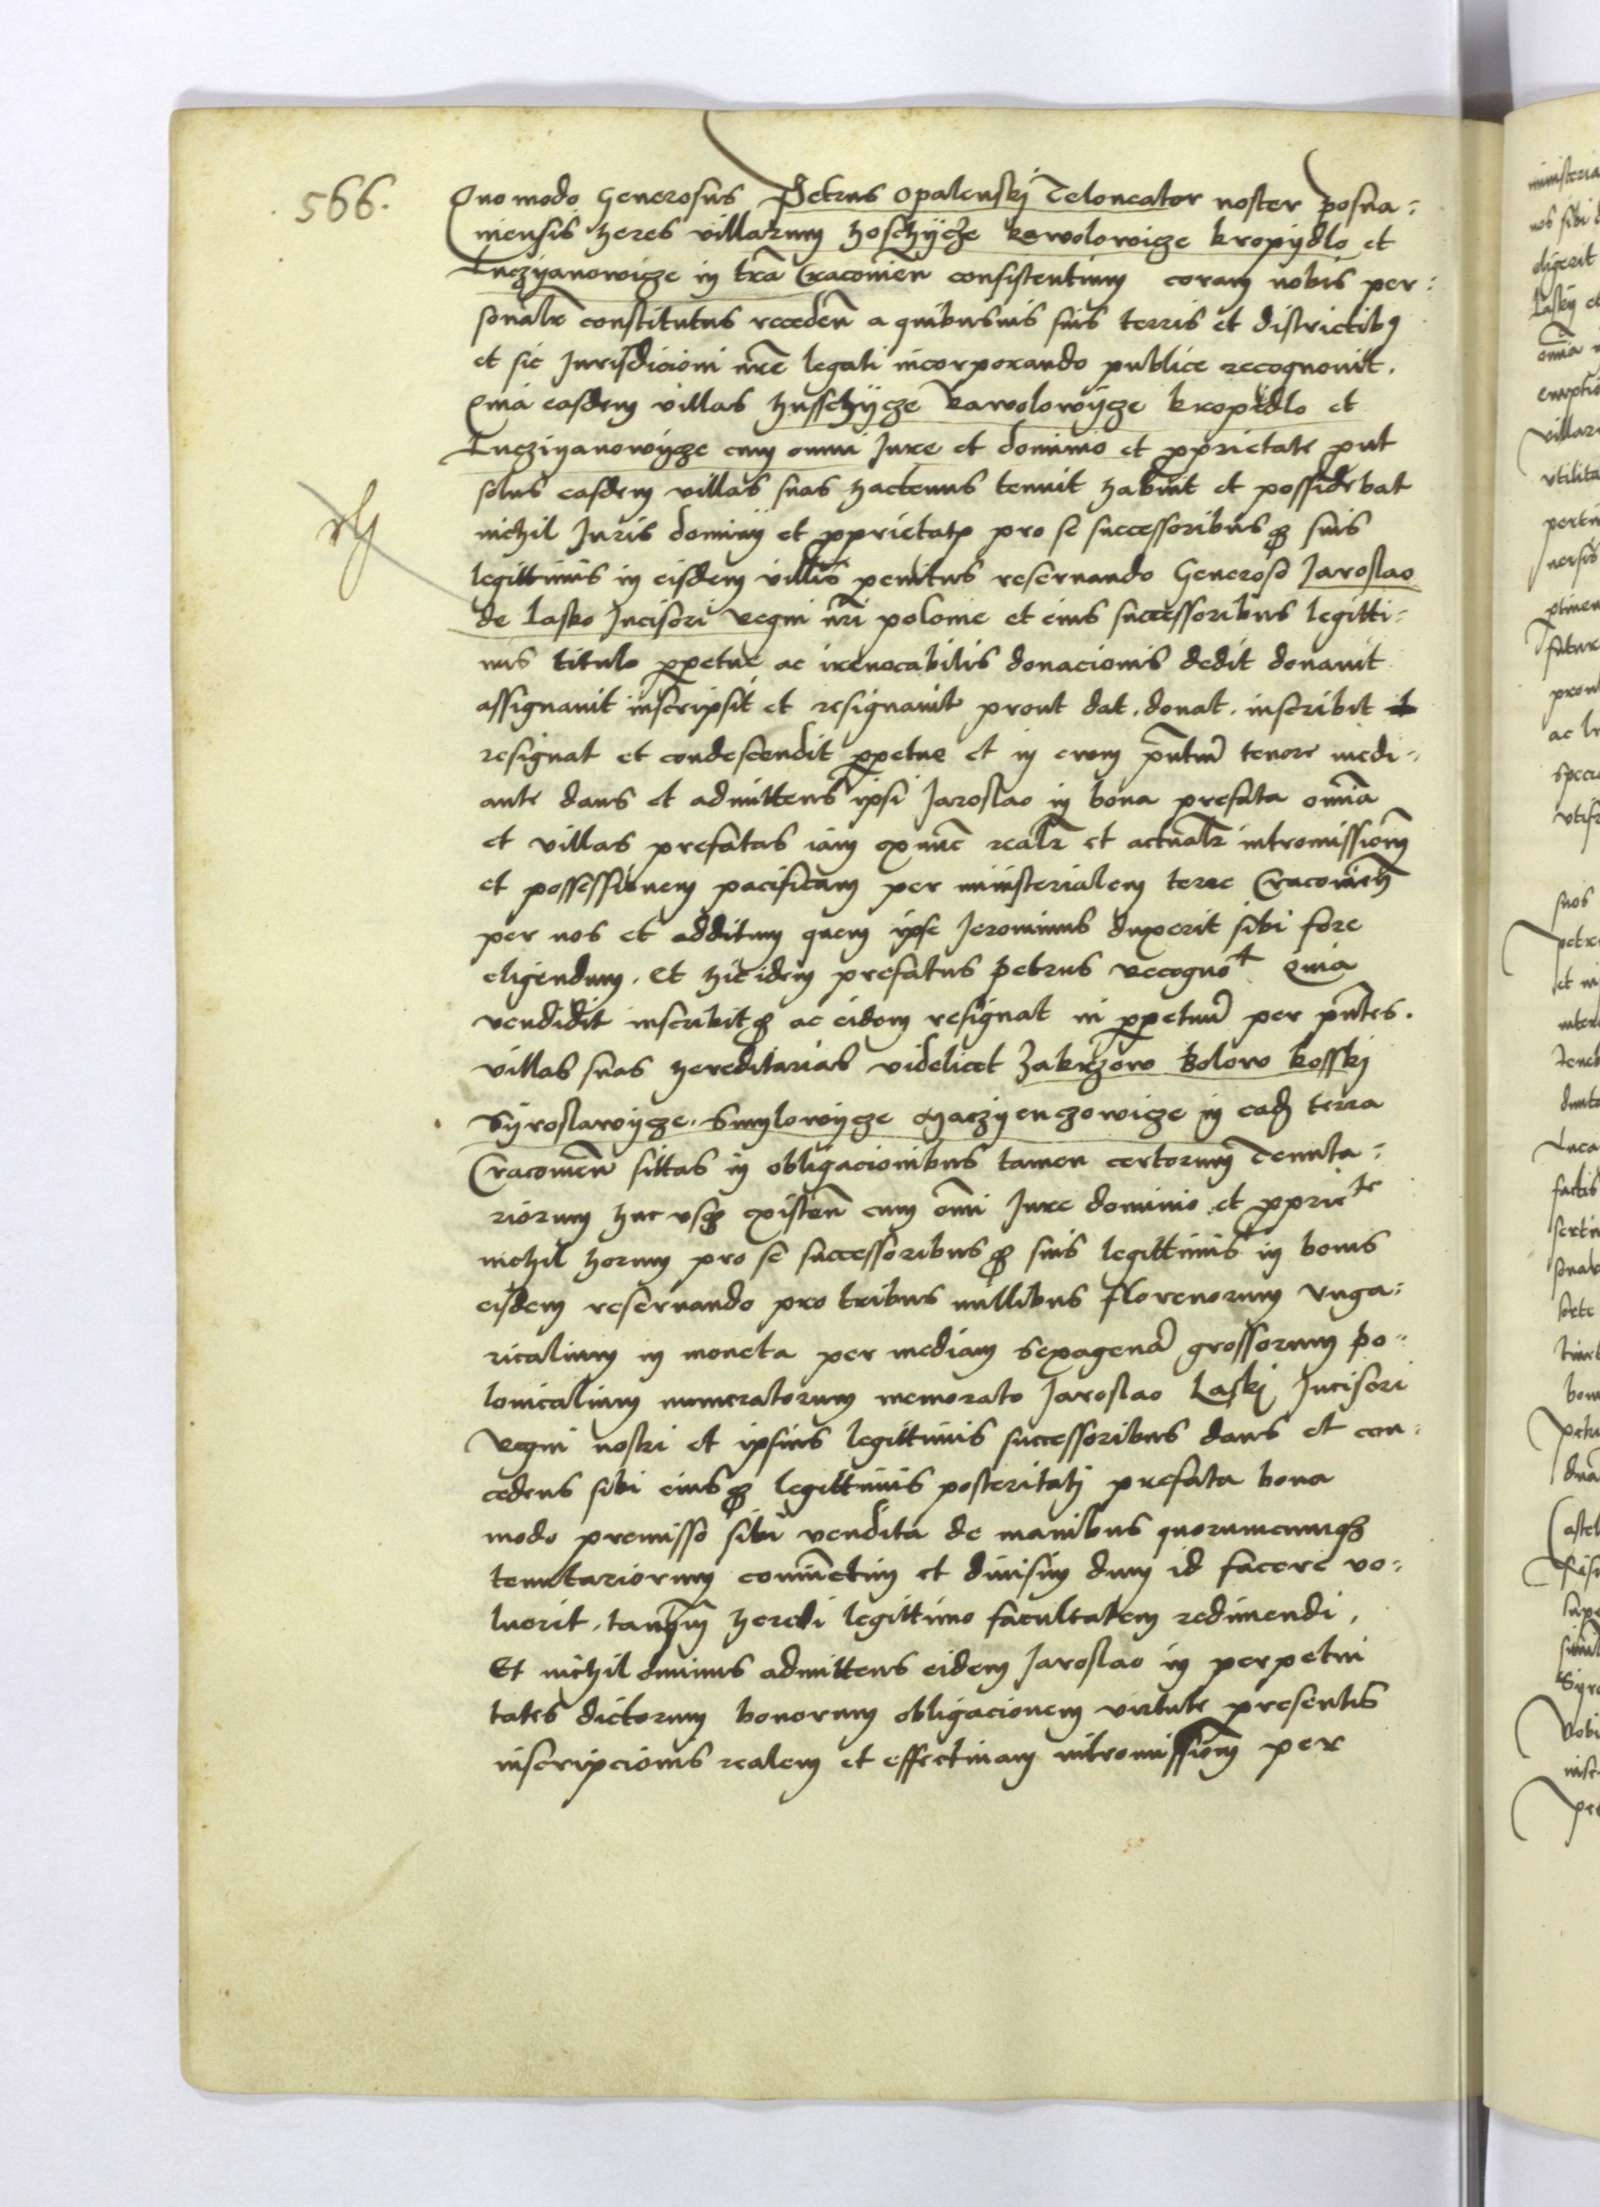 566.
Quo modo Generosus Petrus Opalenskj Teloneator noster posna:
niensis heres villarum hoschÿcze kawolowicze kropÿdlo et
Luczÿanowicze in trā Cracovieñ consistentium coram nobis per:
sonalr̄ constitutus recedeñ a quibusuis suis terris et districtibꝫ
et sic Jurisdicioni nr̄e legati incorporando publice recognouit.
Quia easdem villas husschÿcze kawolowÿcze kropidlo et
Lucziyanowÿcze cum omni Jure et dominio et ꝓprietate ꝓut
solus easdem villas suas hactenus tenuit habuit et possidebat
nichil Juris dominij et ꝓprietatꝭ pro se successoribusqꝫ suis
legittimis in eisdem villis penitus reseruando Generoso Jaroslao
de Lasko Incisori Regni nr̄i polonie et eius successoribus legitti:
mis titulo ꝑpetue ac irreuocabilis donacionis dedit donauit
assignauit inscripsit et resignauit prout dat. donat. inscribit
resignat et condescendit ꝑpetue et in euum p̄ntiū tenore medi:
ante dans et admittens ipsi Jaroslao in bona prefata omīa
et villas prefatas iam exnūc realr̄ et actualr̄ intromissionē
et possessionem pacificam per ministerialem terre Cracovieñ
per nos et additum quem ipse Jeronimus duxerit sibi fore
eligendum. Et hic idem prefatus petrus recognoᵗ Quia
vendidit inscribitqꝫ ac eidem resignat in ꝑpetuū per p̄ntes.
villas suas hereditarias videlicet Zakrzow kolow kosskj
Sÿroslawÿcze. Smylowÿcze Maczÿenczowicze in eadꝫ terra
Cracovieñ sittas in obligacionibus tamen certorum Tenuta:
riorum huc vsqꝫ existeñ cum om̄i Jure dominio et ꝓprieᵗᵉ
nichil horum pro se successoribusqꝫ suis legittimis in bonis
eisdem reseruando pro tribus millibus florenorum vnga:
ricalium in moneta per mediam sexagenā grossorum po:
lonicalium numeratorum memorato Jaroslao Laskj Incisori
Regni nostri et ipsius legittimis successoribus dans et con:
cedens sibi eiusqꝫ legittimis posteritatj prefata bona
modo premisso sibi vendita de manibus quorumcumqꝫ
tenutariorum coniūctim et diuisim dum id facere vo:
luerit. tanqͣm heredi legittimo facultatem redimendi.
Et nichilominus admittens eidem Jaroslao in perpetui
tates dictorum bonorum obligacionem virtute presentis
inscripcionis realem et effectiuam intromissionē per